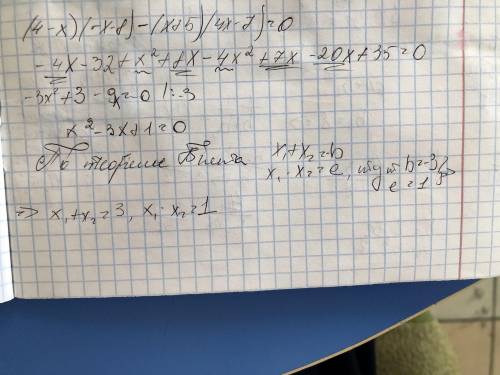 (4-x)(-x-8)-(x+5)(4x-7)=0
-4x-32+x²+8x-4x²+7x-20x+35=0
-3x²+3-9x=0 |:-3
x²-3x+1=0
По теореме Виета x₁+x₂=b
x₁·x₂=c, тут b=-3
c=1 =>
=> x₁+x₂=3, x₁·x₂=1